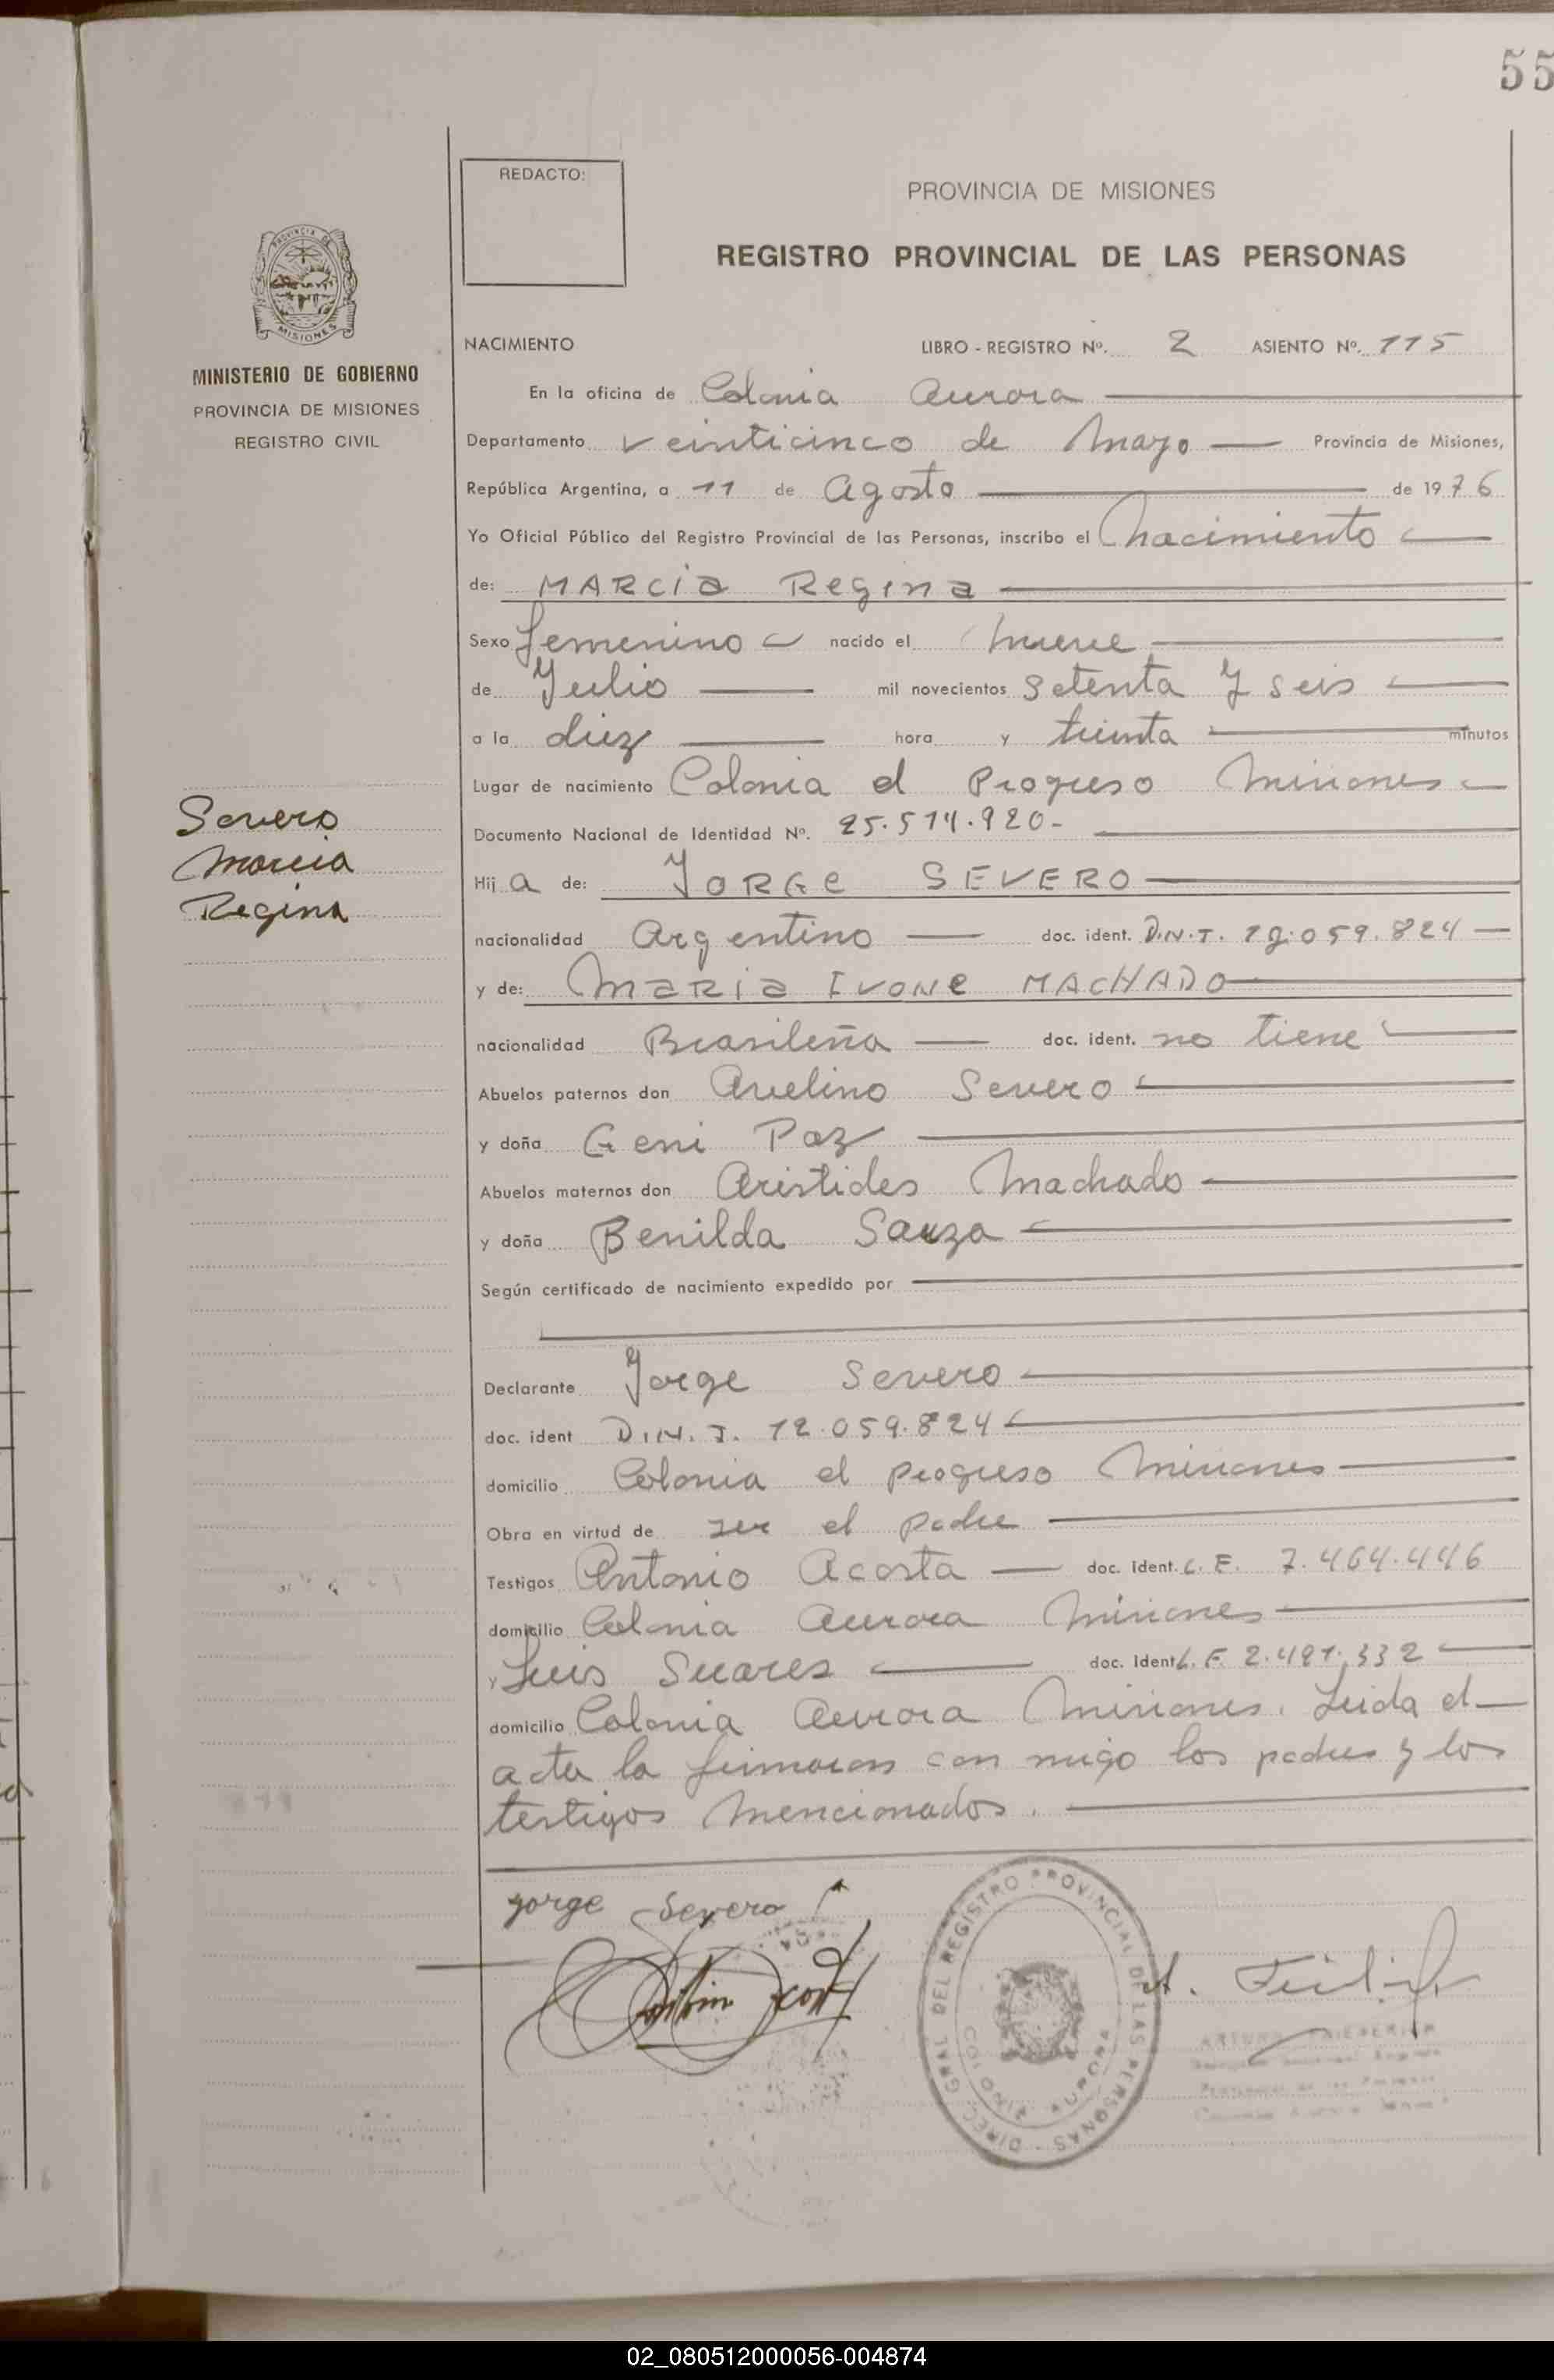 55
REDACTO:
PROVINCIA DE MISIONES
REGISTRO PROVINCIAL DE LAS PERSONAS
PROVINCIA DE
MISIONES
MINISTERIO DE GOBIERNO
PROVINCIA DE MISIONES
REGISTRO CIVIL
NACIMIENTO LIBRO - REGISTRO Nº. 2 ASIENTO Nº. 115
En la oficina de Colonia Aurora
Departamento veinticinco de Mayo Provincia de Misiones,
República Argentina, a 11 de Agosto de 1976
Yo Oficial Público del Registro Provincial de las Personas, inscribo el Nacimiento
de: MARCIA Regina
Sexo femenino nacido el Nueve
de Julio mil novecientos Setenta y seis
a la diez hora y treinta minutos
Lugar de nacimiento Colonia el Progreso Misiones
Documento Nacional de Identidad Nº. 25.514.920-
Severo
Marcia
Regina
Hija de: JORGE SEVERO
nacionalidad Argentino doc. ident. D.N.I. 12.059.824
y de: MARIA IVONE MACHADO
nacionalidad Brasileña doc. ident. no tiene
Abuelos paternos don Avelino Severo
y doña Geni Paz
Abuelos maternos don Aristides Machado
y doña Benilda Sauza
Según certificado de nacimiento expedido por
Declarante Jorge Severo
doc. ident D.N.I. 12.059.824
domicilio Colonia el progreso Misiones
Obra en virtud de ser el padre
Testigos Antonio Acosta doc. ident. L.E. 7.464.446
domicilio Colonia Aurora Misiones
y Luis Suares doc. Ident L.E. 2.491.332
domicilio Colonia Aurora Misiones. Leida el
acta la firmaron con migo los padres y los
testigos mencionados.
Jorge Severo
DIREC. GRAL. DEL REGISTRO PROVINCIAL DE LAS PERSONAS
COLONIA AURORA
02_080512000056-004874